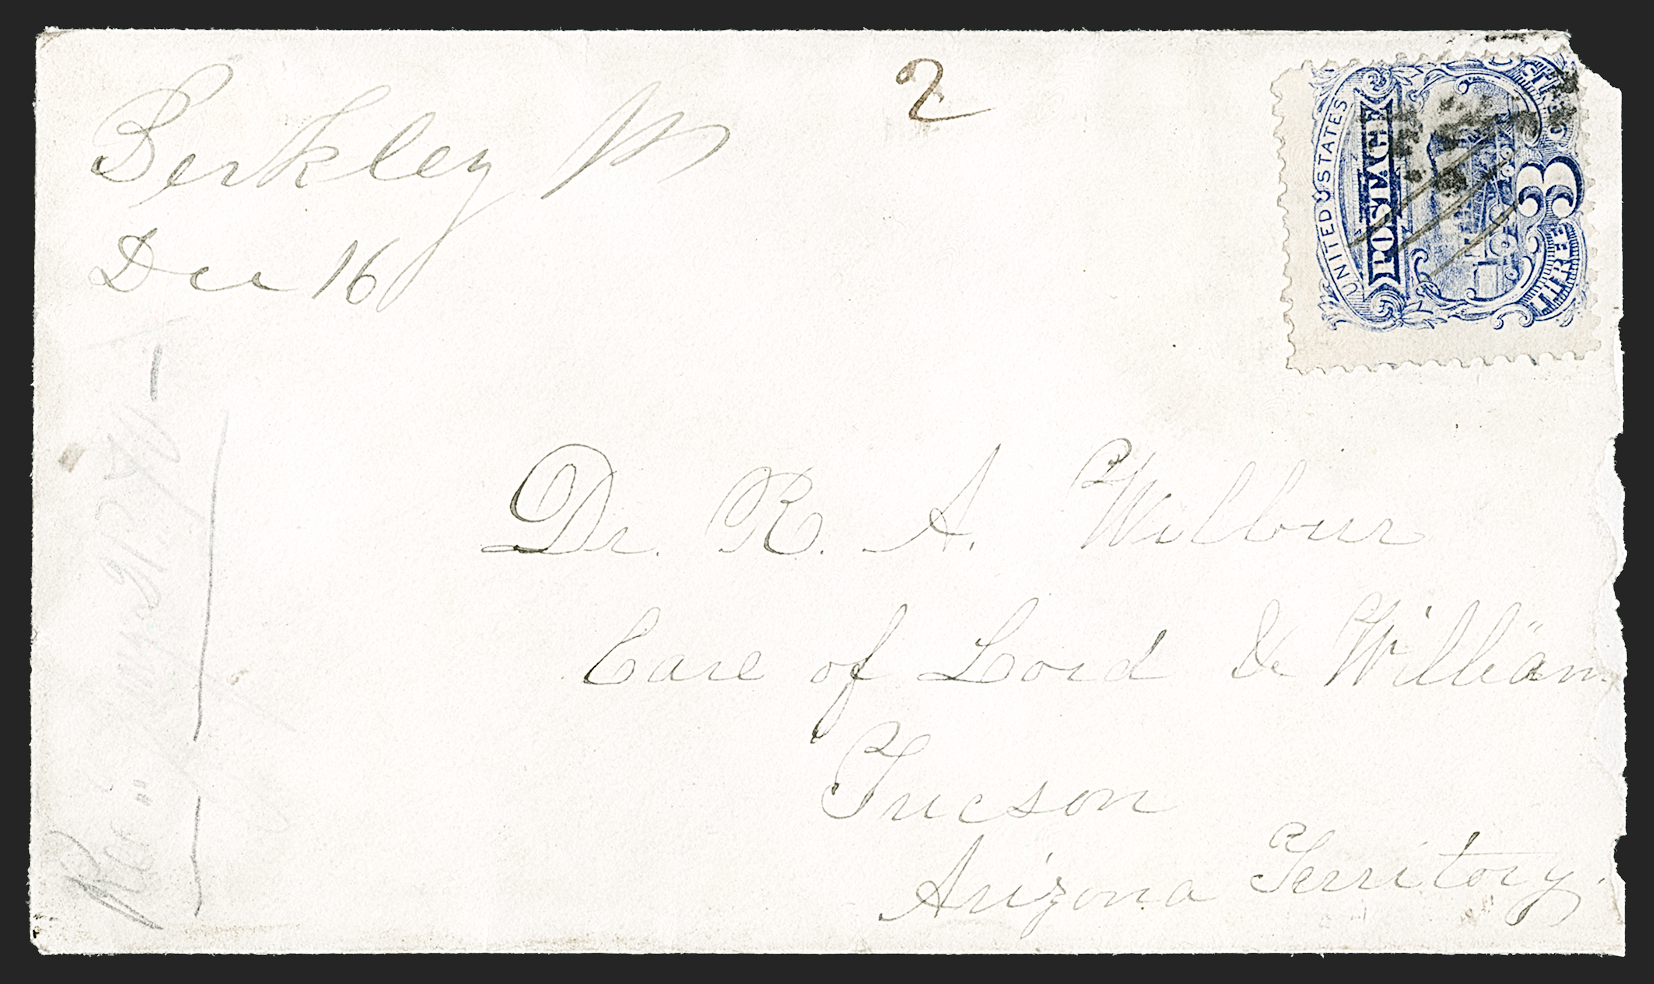 Berkley M
Dec 16
2
UNITED STATES
POSTAGE
3
THREE
Dr. R. A. Wilbur
Care of Lord & William
Tucson
Arizona Territory.